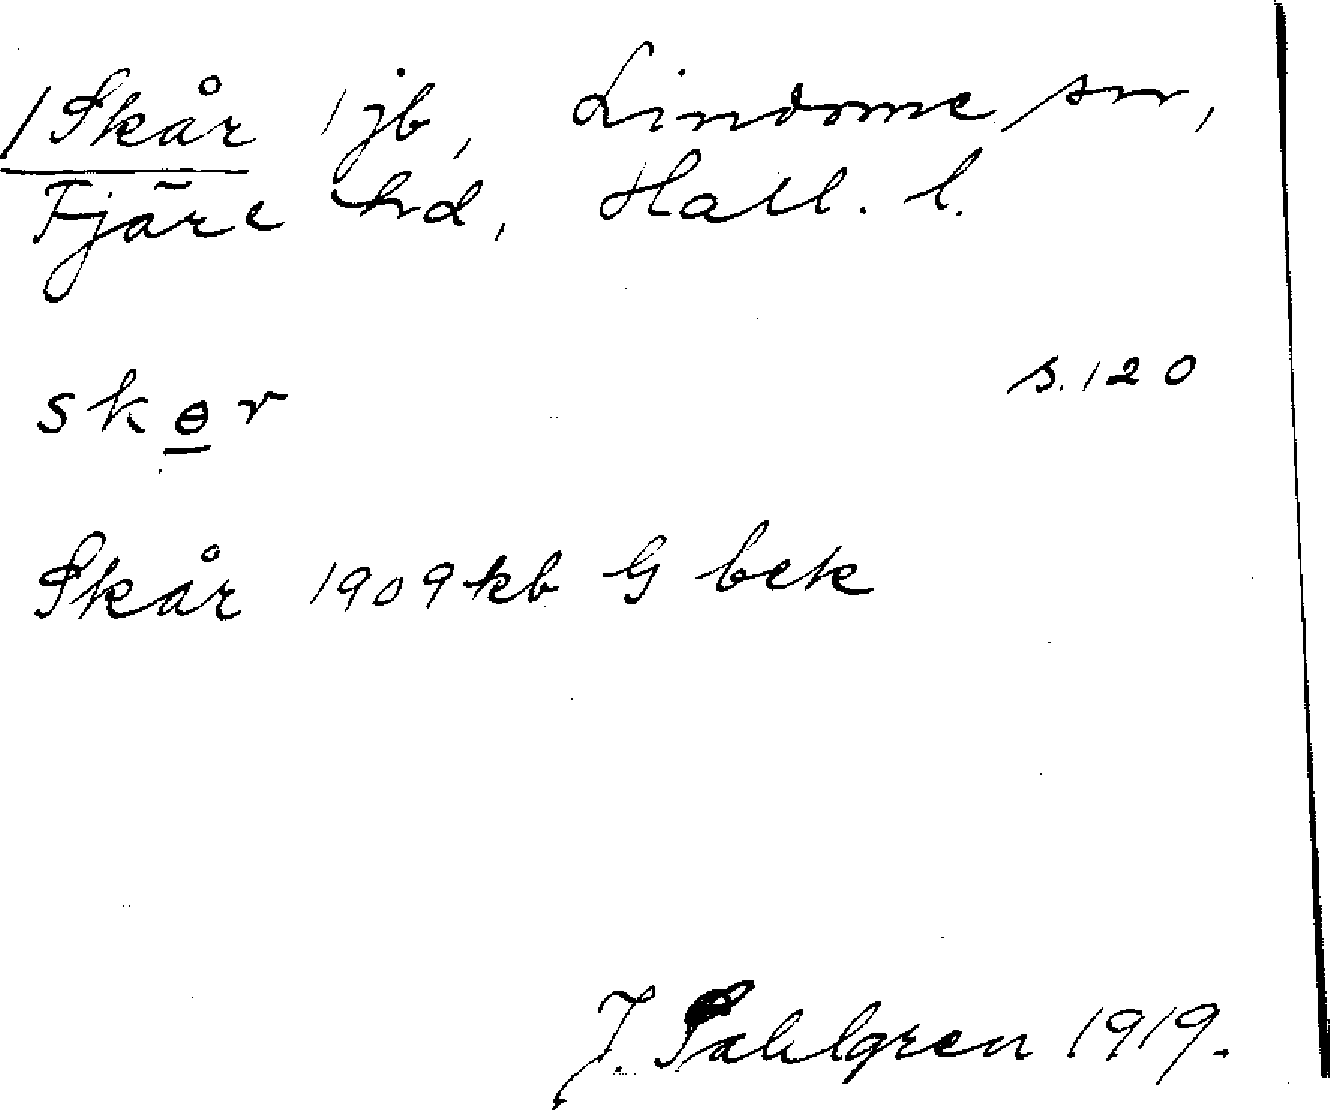 /Skår 1 jb, Lindome sn,
Fjäre hd, Hall. l.
s. 120
skɵr
Skår 1909 kb G bek
J. Sahlgren 1919.